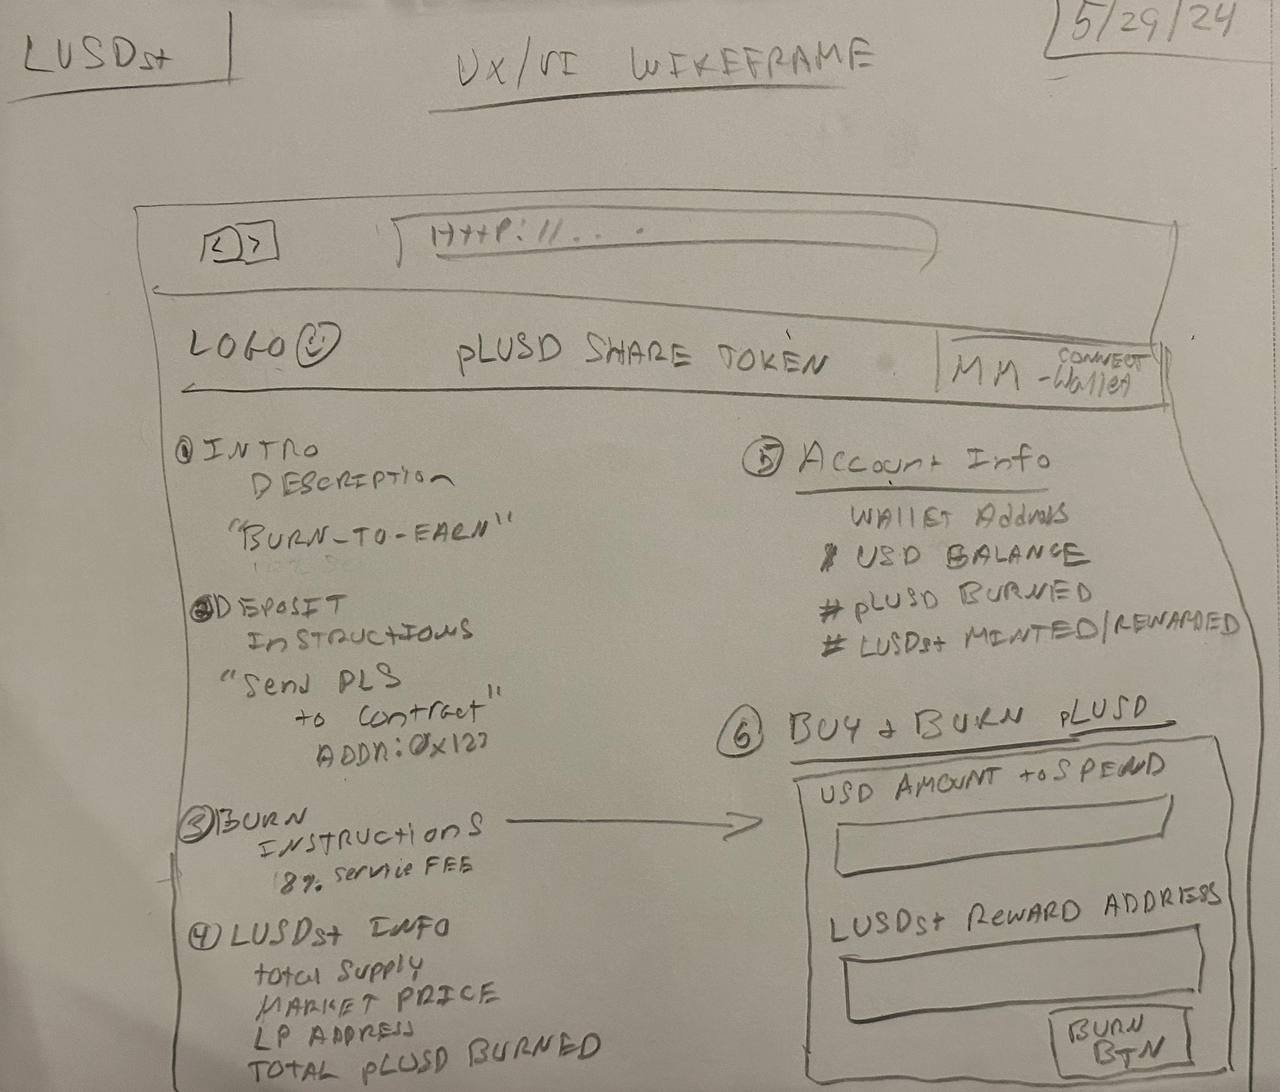 LUSDst
UX/UI WIREFRAME
5/29/24
< >
HTTP://...
LOGO
pLUSD SHARE TOKEN
MM - CONNECT
Wallet
1 INTRO
DESCRIPTION
"BURN-TO-EARN"
2 DEPOSIT
INSTRUCTIONS
"Send PLS
to contract"
ADDR: 0x123
3 BURN
INSTRUCTIONS
8% service FEE
4 LUSDst INFO
total supply
MARKET PRICE
LP ADDRESS
TOTAL pLUSD BURNED
5 Account Info
WALLET Address
$ USD BALANCE
# pLUSD BURNED
# LUSDst MINTED/REWARDED
6 BUY & BURN pLUSD
USD AMOUNT to SPEND
LUSDst REWARD ADDRESS
BURN
BTN